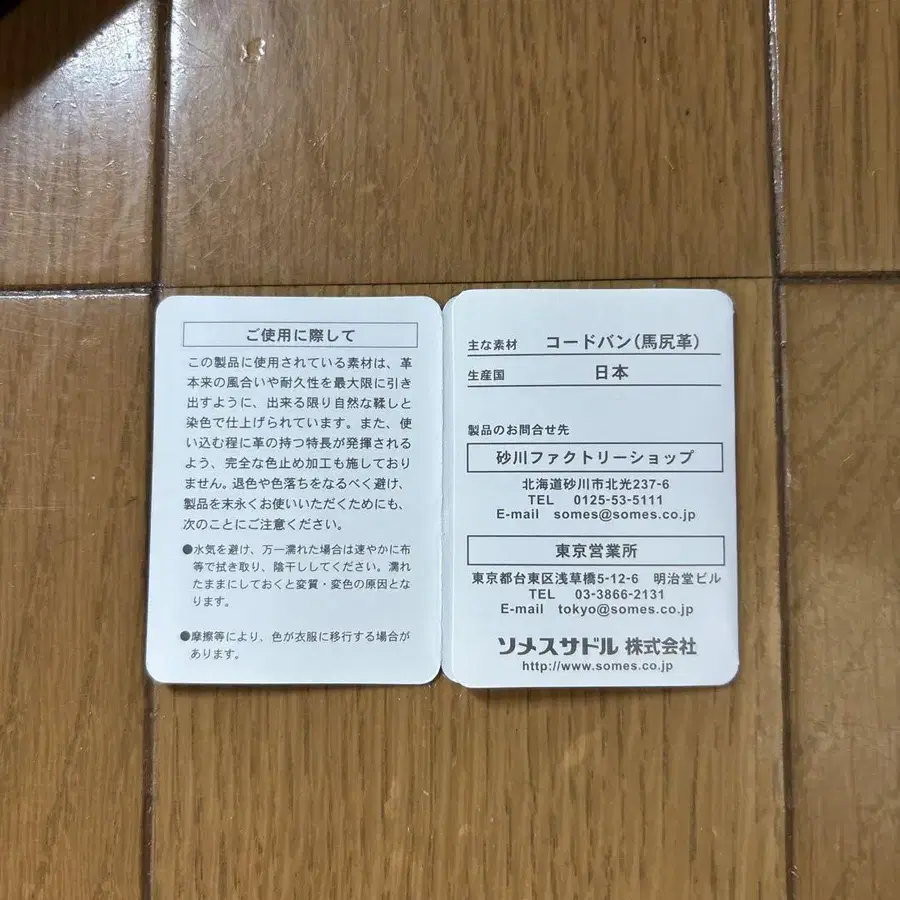 ご使用に際して
この製品に使用されている素材は、革
本来の風合いや耐久性を最大限に引き
出すように、出来る限り自然な鞣しと
染色で仕上げられています。また、使
い込む程に革の持つ特長が発揮される
よう、完全な色止め加工も施しており
ません。退色や色落ちをなるべく避け、
製品を末永くお使いいただくためにも、
次のことにご注意ください。
●水気を避け、万一濡れた場合は速やかに布
等で拭き取り、陰干ししてください。濡れ
たままにしておくと変質・変色の原因とな
ります。
●摩擦等により、色が衣服に移行する場合が
あります。
主な素材 コードバン(馬尻革)
生産国 日本
製品のお問合せ先
砂川ファクトリーショップ
北海道砂川市北光237-6
TEL 0125-53-5111
E-mail somes@somes.co.jp
東京営業所
東京都台東区浅草橋5-12-6 明治堂ビル
TEL 03-3866-2131
E-mail tokyo@somes.co.jp
ソメスサドル 株式会社
http://www.somes.co.jp